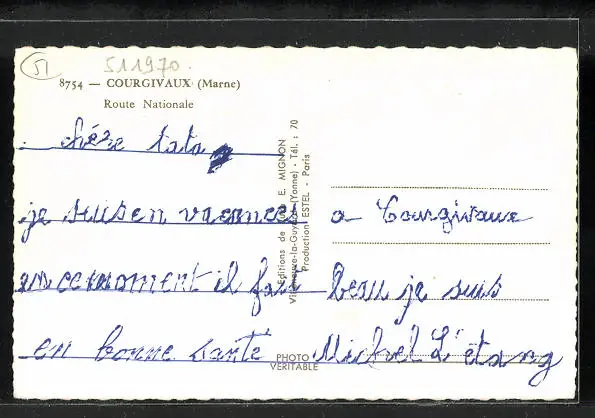 51
511970.
8754 — COURGIVAUX (Marne)
Route Nationale
chére tata
je suis en vacances a Courgivaux
en ce moment il fait Beau je suis
en bonne santé Michel L'étang
Editions de E. MIGNON
Villeneuve-la-Guyard (Yonne) - Tél. : 70
Production ESTEL - Paris
PHOTO
VÉRITABLE